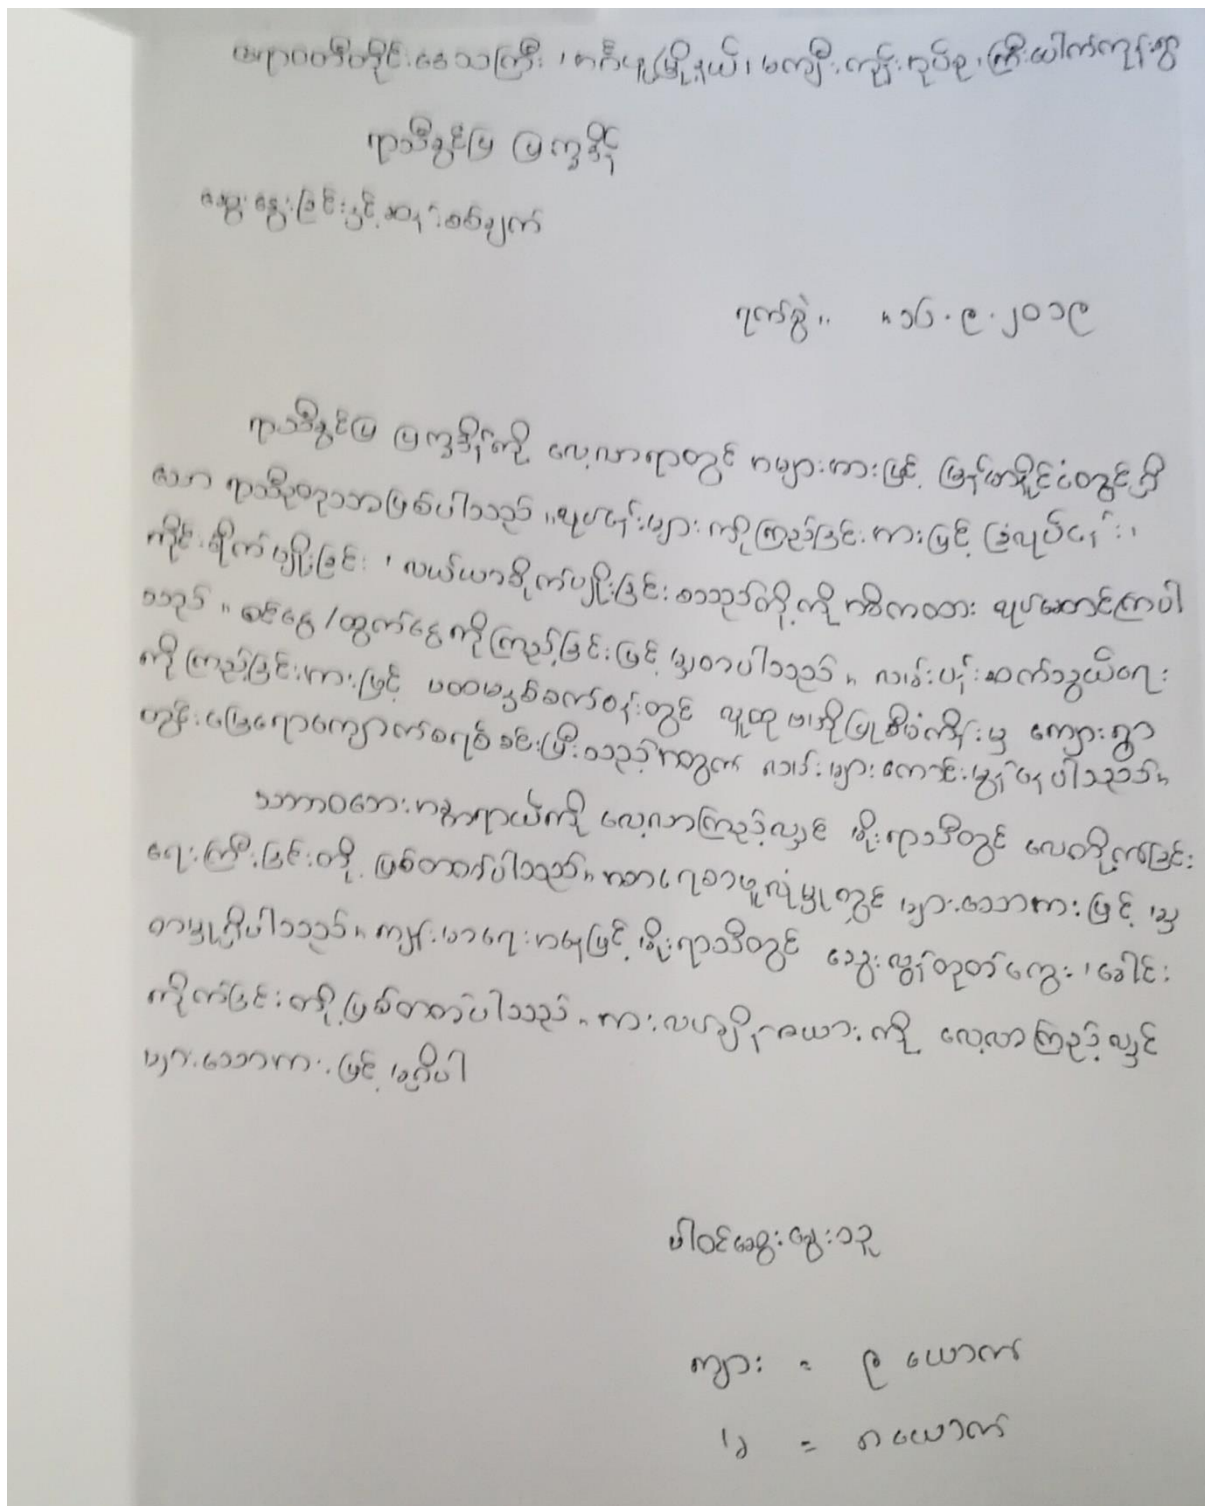 ဧရာဝတီတိုင်းဒေသကြီး၊ အင်္ဂပူမြို့နယ်၊ မကျီးကျွန်းအုပ်စု၊ ကြီးပေါက်ကုန်းရွာ
ရာသီခွင်ပြ ပြက္ခဒိန်
ဆွေးနွေးခြင်းနှင့်ဆန်းစစ်ချက်
ရက်စွဲ။ ။၁၆.၉.၂၀၁၉
ရာသီခွင်ပြ ပြက္ခဒိန်ကို လေ့လာရာတွင် အများအားဖြင့် မြန်မာနိုင်ငံတွင်ရှိ
သော ရာသီဥတုသာဖြစ်ပါသည်။ လုပ်ငန်းများကိုကြည့်ခြင်းအားဖြင့် ခြံလုပ်ငန်း၊
ကိုင်းစိုက်ပျိုးခြင်း၊ လယ်ယာစိုက်ပျိုးခြင်း စသည်တို့ကို အဓိကထား လုပ်ဆောင်ကြပါ
သည်။ ဝင်ငွေ/ထွက်ငွေကိုကြည့်ခြင်းဖြင့် မျှတပါသည်။ လမ်းပန်းဆက်သွယ်ရေး
ကိုကြည့်ခြင်းအားဖြင့် ပထမနှစ်စက်ဝန်းတွင် လူထုဗဟိုပြုစီမံကိန်းမှ ကျေးရွာ
တွင်းမြေရောကျောက်စရစ်ခင်းပြီးသည့်အတွက် လမ်းများကောင်းမွန်နေပါသည်။
သဘာဝဘေးအန္တရာယ်ကို လေ့လာကြည့်လျှင် မိုးရာသီတွင် လေတိုက်ခြင်း
ရေးကြီးခြင်းတို့ ဖြစ်တတ်ပါသည်။ အစားရေစာဖူလုံမှုတွင် များသောအားဖြင့် မျှ
တမှုရှိပါသည်။ ကျန်းမာရေးအနေဖြင့် မိုးရာသီတွင် သွေးလွန်တုတ်ကွေး၊ ခေါင်း
ကိုက်ခြင်းတို့ဖြစ်တတ်ပါသည်။ အားလပ်ချိန်ဇယားကို လေ့လာကြည့်လျှင်
များသောအားဖြင့် မရှိပါ
ပါဝင်ဆွေးနွေးသူ
ကျား = ၉ ယောက်
မ = ၈ ယောက်